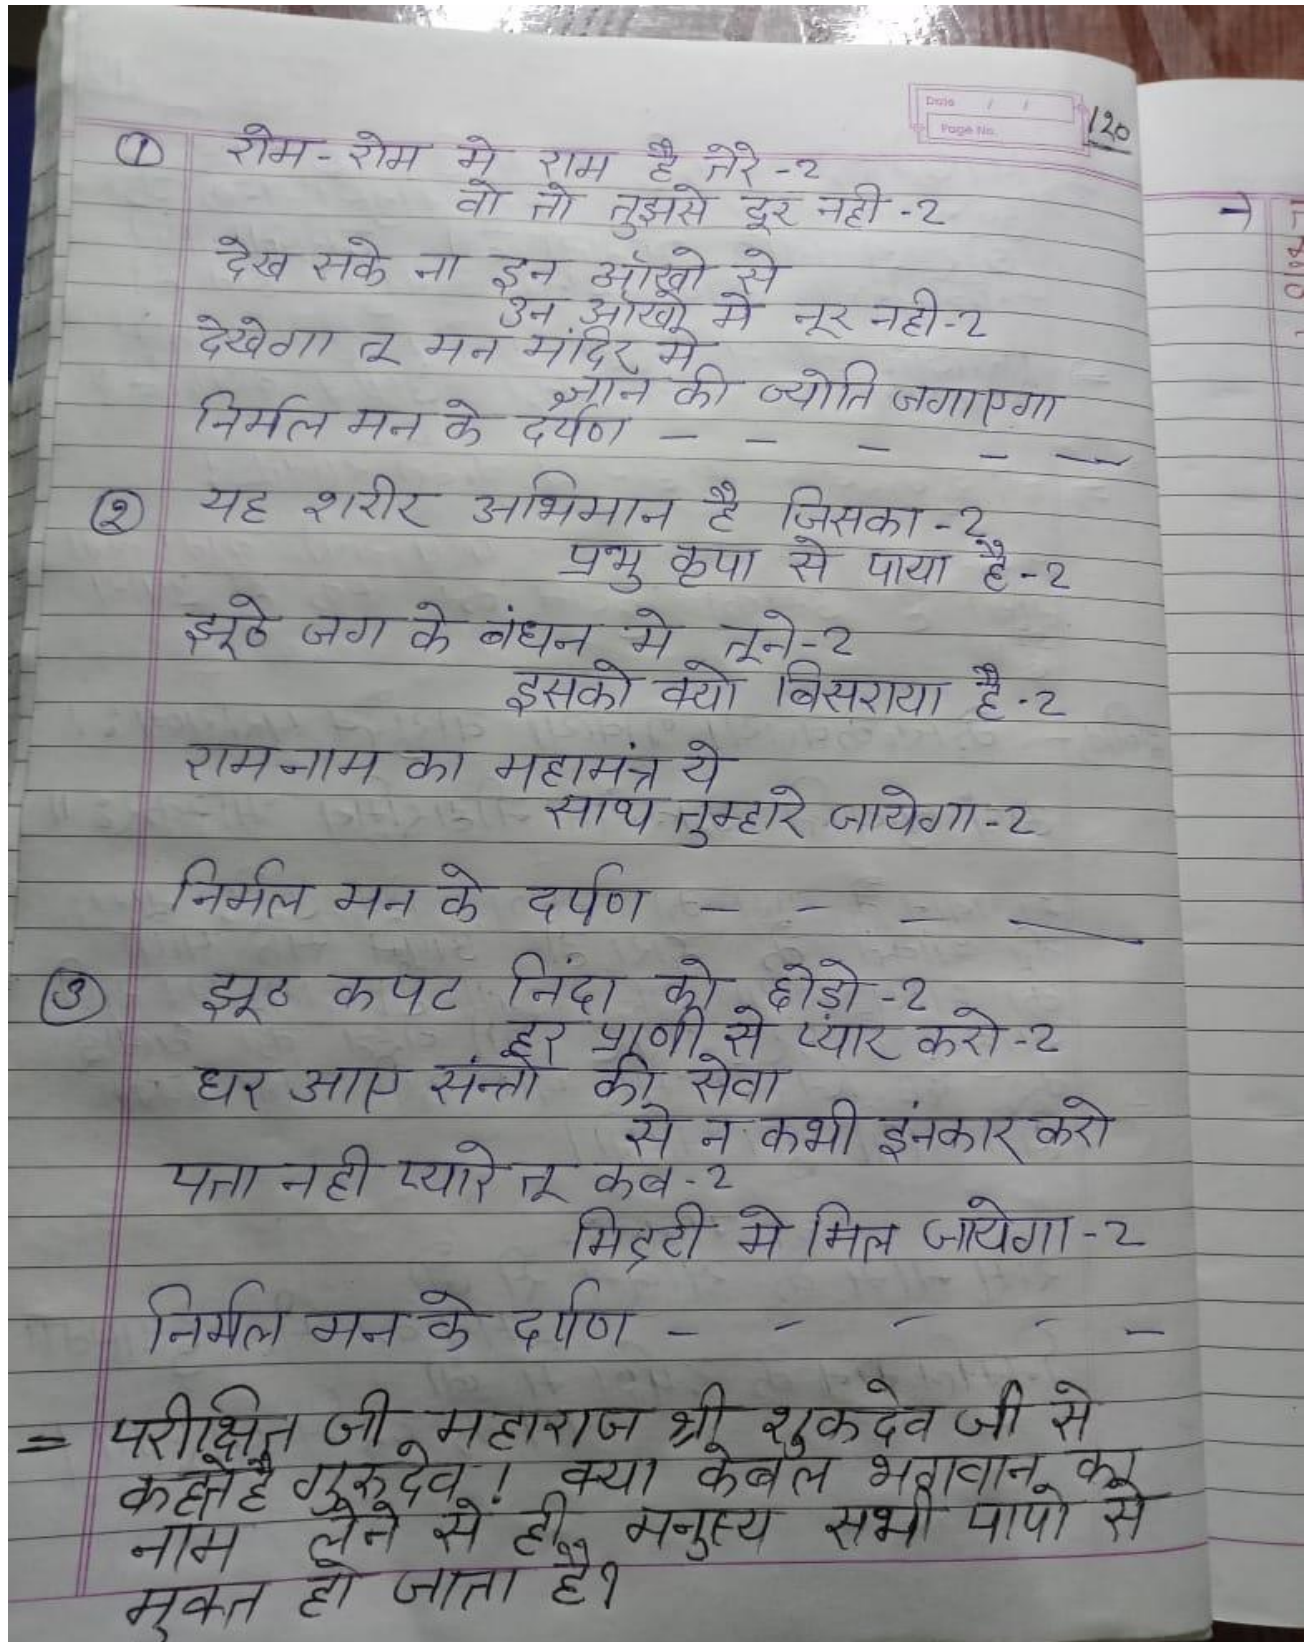 Date / /
Page No.
120
① रोम-रोम मे राम है तेरे-2
वो तो तुझसे दूर नही-2
देख सके ना इन आँखो से
उन आँखो मे नूर नही-2
देखेगा तू मन मंदिर मे
ज्ञान की ज्योति जगाएगा
निर्मल मन के दर्पण - - - - -
② यह शरीर अभिमान है जिसका-2
प्रभु कृपा से पाया है-2
झूठे जग के बंधन मे तूने-2
इसको क्यो बिसराया है-2
रामनाम का महामंत्र ये
साथ तुम्हारे जायेगा-2
निर्मल मन के दर्पण - - - -
③ झूठ कपट निंदा को छोडो-2
हर प्राणी से प्यार करो-2
घर आए संन्तो की सेवा
से न कभी इंनकार करो
पता नही प्यारे तू कब-2
मिट्टी मे मिल जायेगा-2
निर्मल मन के दर्पण - - - - -
= परीक्षित जी महाराज श्री शुकदेव जी से
कहतेहै गुरुदेव! क्या केबल भगवान का
नाम लेने से ही मनुष्य सभी पापो से
मुक्त हो जाता है?